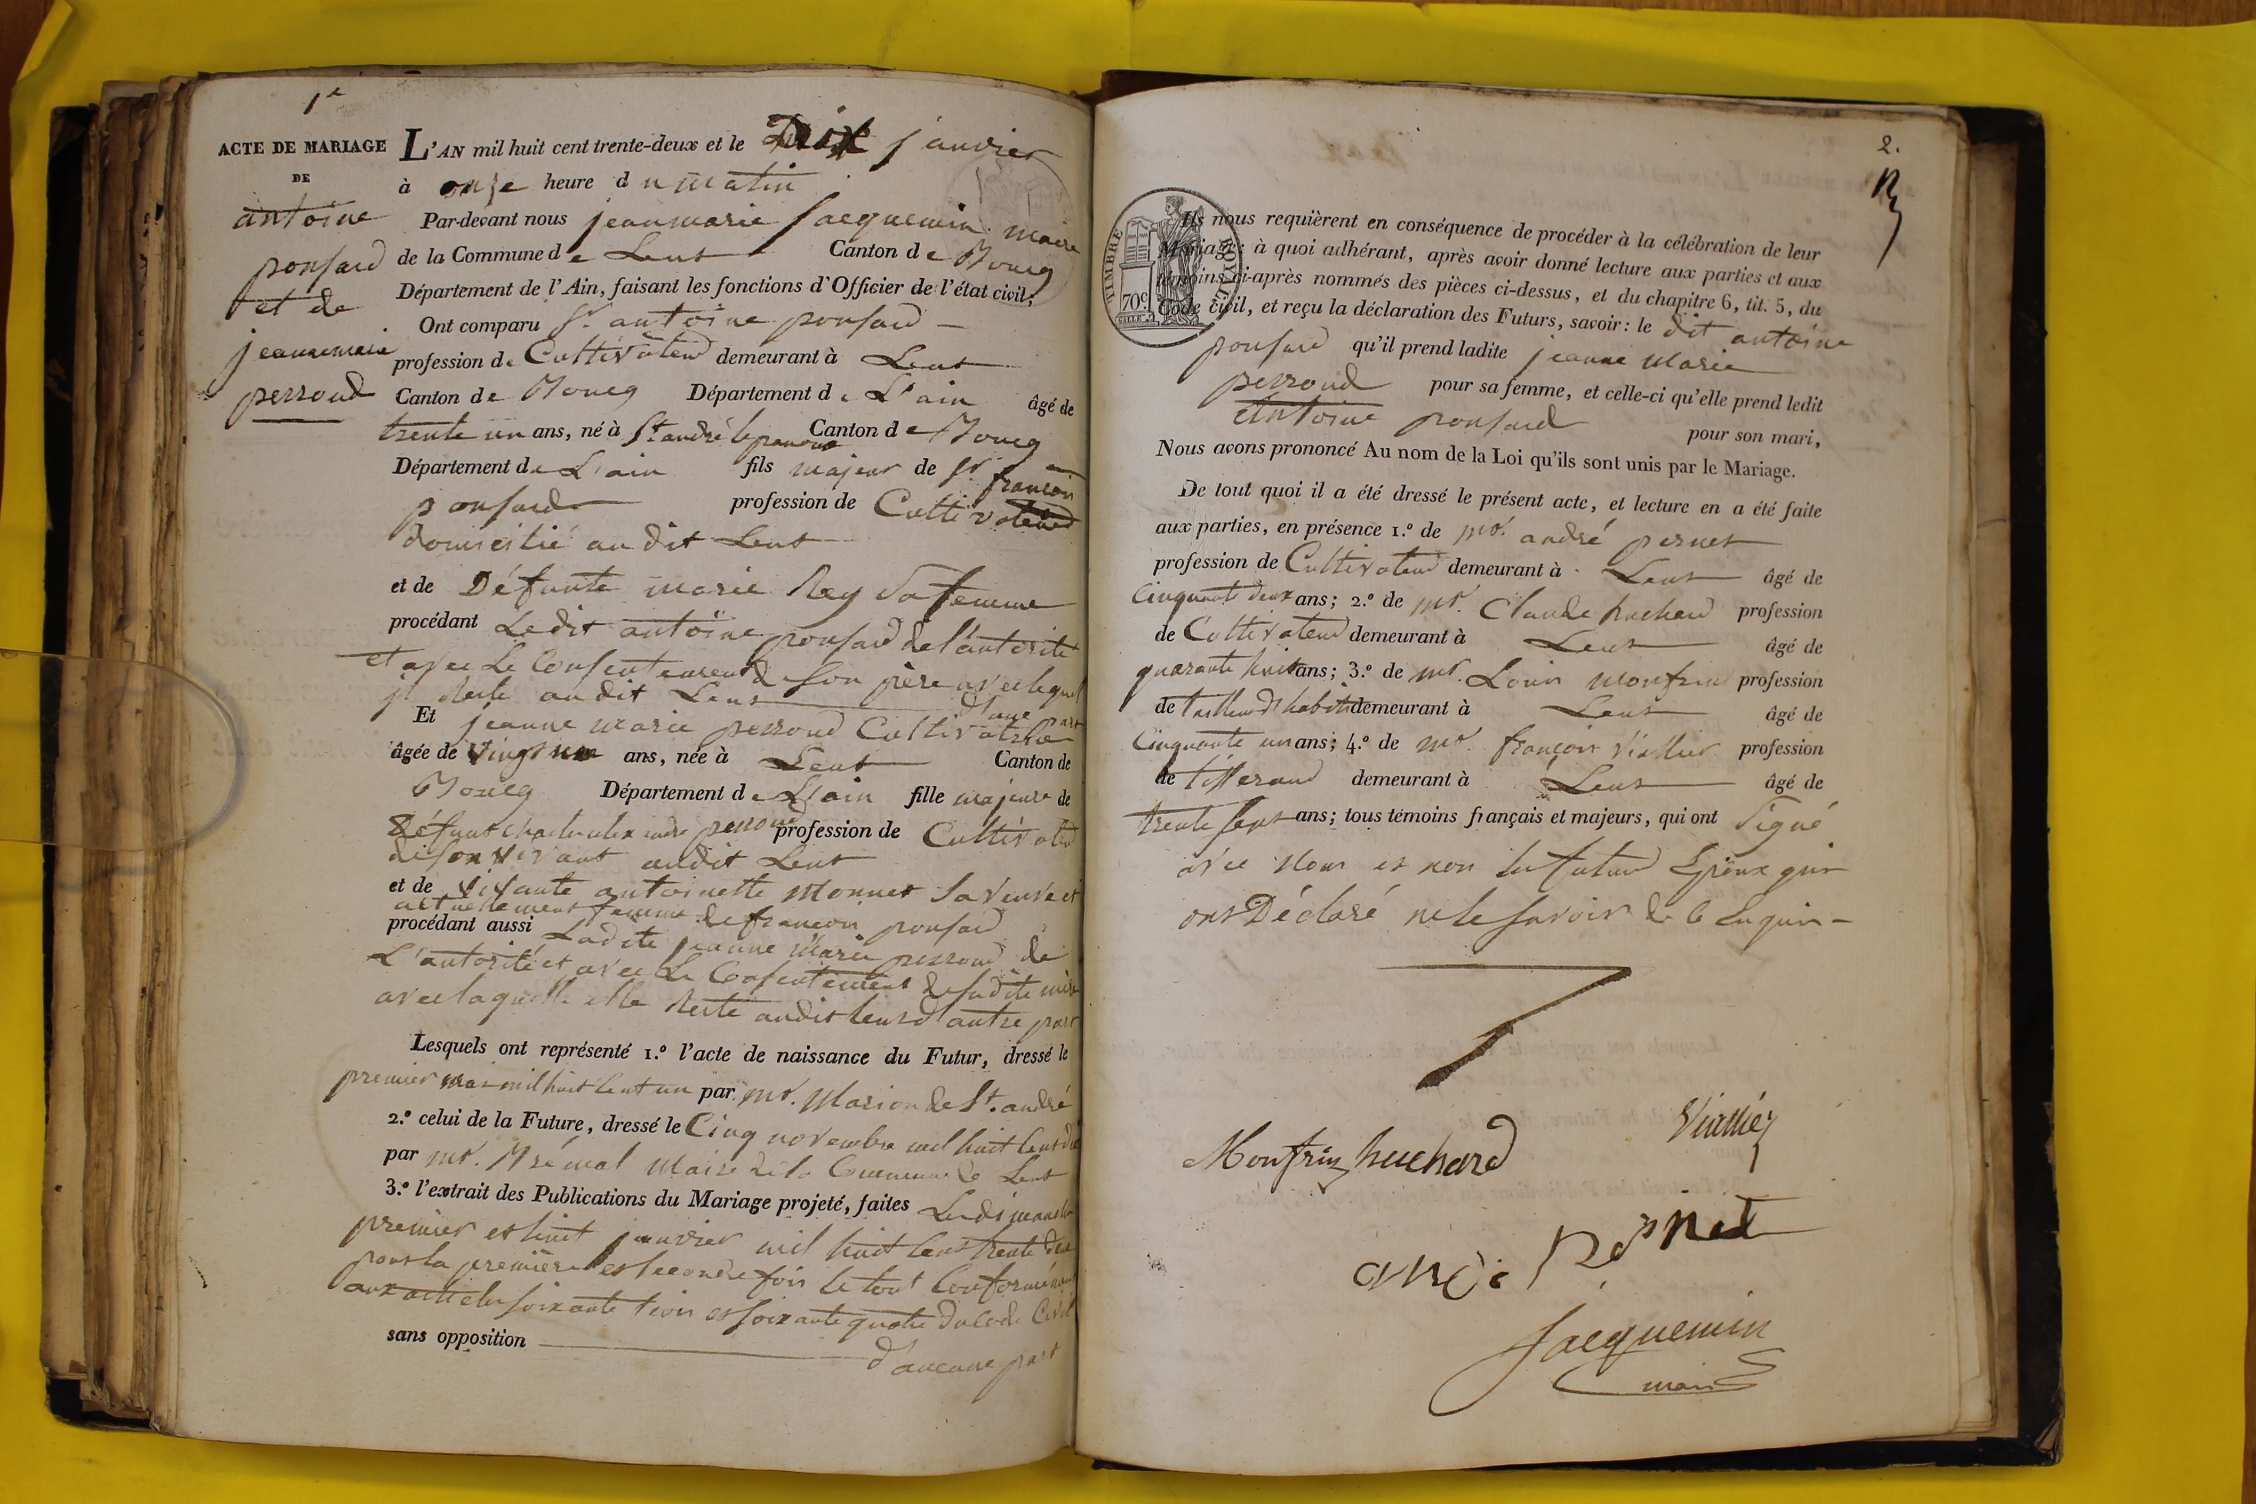 1e
ACTE DE MARIAGE
DE
antoine
ponsard
et de
jeannemarie
perroud
L'AN mil huit cent trente-deux et le Dix janvier
à onze heure du matin
Par-devant nous jeanmarie jacquemin maire
de la Commune de Lent Canton de Bourg
Département de l'Ain, faisant les fonctions d'Officier de l'état civil,
Ont comparu sr. antoine ponsard
profession de Cultivateur demeurant à Lent
Canton de Bourg Département de L'ain âgé de
trente un ans, né à St. andré le panoux Canton de Bourg
Département de L'ain fils majeur de sr. françois
ponsard profession de Cultivateur
domicilié audit Lent
et de Défunte marie Rey sa femme
procédant Ledit antoine ponsard de l'autorité
et avec Le Consentement de son père avec lequel
il Reste audit Lent d'une part
Et jeanne marie perroud Cultivatrice
âgée de vingt un ans, née à Lent Canton de
Bourg Département de L'ain fille majeure de
défunt charles alexandre perroud profession de Cultivateur
de son vivant audit Lent
et de vivante antoinette Monnet sa veuve et
actuellement femme de françois ponsard
procédant aussi Ladite jeanne Marie perroud de
L'autorité et avec Le Consentement de sadite mère
avec laquelle elle Reste audit lent d'autre part
Lesquels ont représenté 1.º l'acte de naissance du Futur, dressé le
premier mai mil huit cent un par mr. Marion de St. andré
2.º celui de la Future, dressé le Cinq novembre mil huit cent dix
par mr. Brémal Maire de la Commune de Lent
3.º l'extrait des Publications du Mariage projeté, faites Le dimanche
premier et huit janvier mil huit cent trente deux
pour la première et seconde fois le tout Conformément
aux articles soixante trois et soixante quatre du Code Civil
sans opposition d'aucune part
2.
TIMBRE ROYAL
70c
Ils nous requièrent en conséquence de procéder à la célébration de leur
Mariage: à quoi adhérant, après avoir donné lecture aux parties et aux
témoins ci-après nommés des pièces ci-dessus, et du chapitre 6, tit. 5, du
Code civil, et reçu la déclaration des Futurs, savoir: le dit antoine
ponsard qu'il prend ladite jeanne Marie
perroud pour sa femme, et celle-ci qu'elle prend ledit
antoine ponsard pour son mari,
Nous avons prononcé Au nom de la Loi qu'ils sont unis par le Mariage.
De tout quoi il a été dressé le présent acte, et lecture en a été faite
aux parties, en présence 1.º de mr. andré pernet
profession de Cultivateur demeurant à Lent âgé de
Cinquante deux ans; 2.º de mr. Claude huchard profession
de Cultivateur demeurant à Lent âgé de
quarante huit ans; 3.º de mr. Louis Monfrin profession
de tailleur d'habits demeurant à Lent âgé de
Cinquante un ans; 4.º de mr. françois Viallier profession
de tisserand demeurant à Lent âgé de
trente sept ans; tous témoins français et majeurs, qui ont signé
avec Nous et non les futurs Epoux qui
ont Déclaré ne le savoir de ce Enquis
Viallier
Monfrin huchard
andé Pernet
Jacquemin
maire